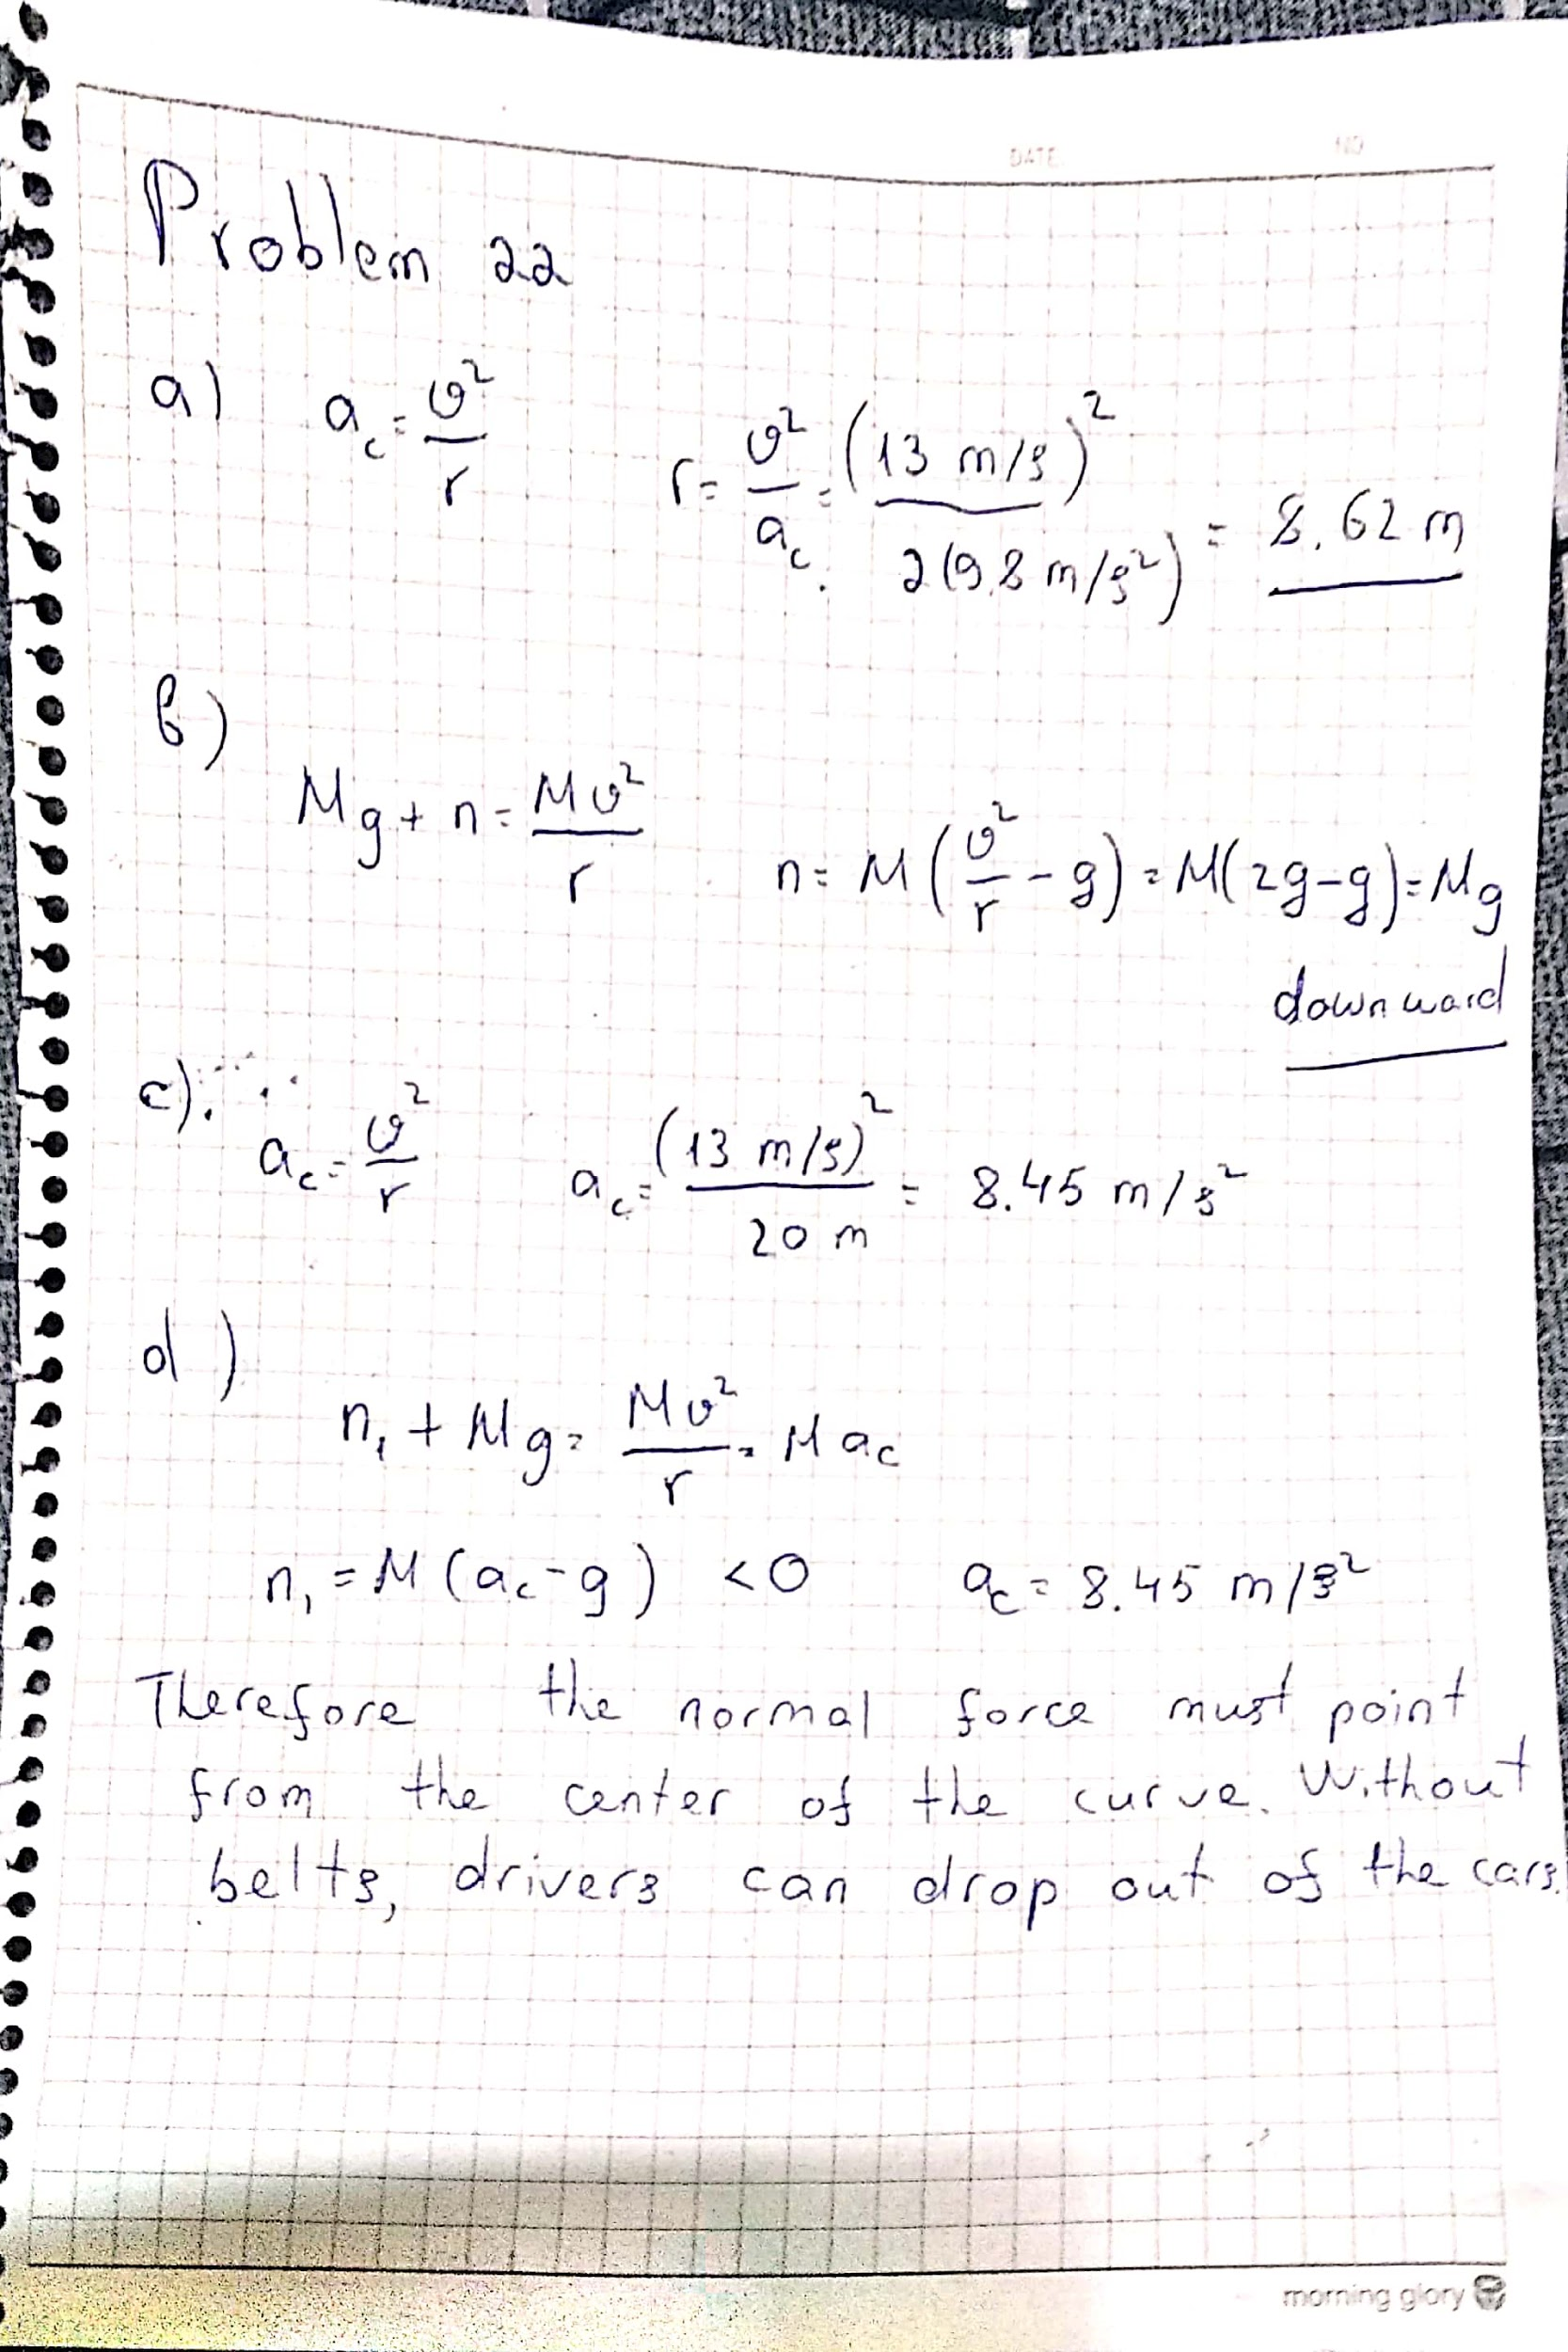 DATE NO
Problem 22
a) a_c = v²/r r = v²/a_c = (13 m/s)²/2(9.8 m/s²) = 8.62 m
b)
Mg + n = Mv²/r n = M(v²/r - g) = M(2g-g) = Mg
downward
c) a_c = v²/r a_c = (13 m/s)²/20 m = 8.45 m/s²
d)
n₁ + Mg = Mv²/r = Ma_c
n₁ = M(a_c - g) < 0 a_c = 8.45 m/s²
Therefore the normal force must point
from the center of the curve. Without
belts, drivers can drop out of the cars.
morning glory